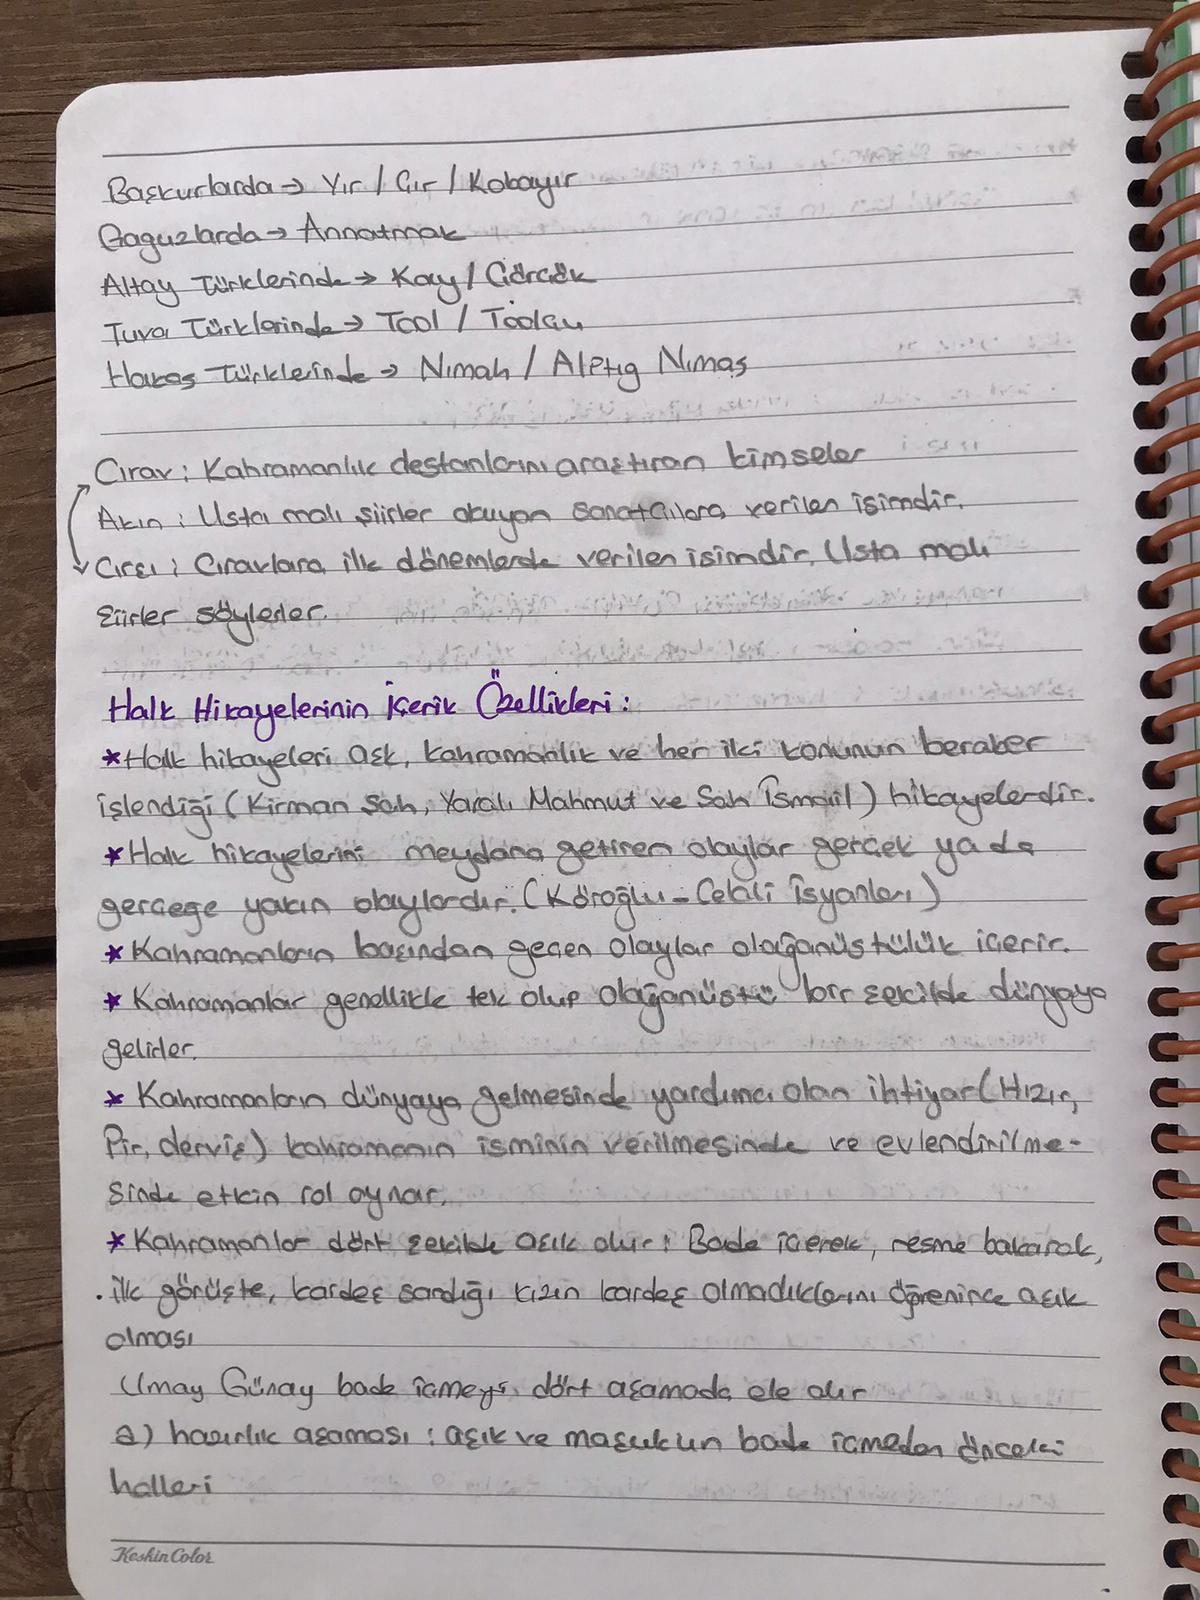 Başkurlarda → Yır / Çır / Kobayır
Gaguzlarda → Annatmak
Altay Türklerinde → Kay / Çörçök
Tuva Türklerinde → Tool / Toolçu
Hakas Türklerinde → Nımah / Alptıg Nımaş
Cırav : Kahramanlık destanlarını araştıran kimseler
Akın : Usta malı şiirler okuyan sanatçılara verilen isimdir.
Cırşı : Cıravlara ilk dönemlerde verilen isimdir. Usta malı
şiirler söylerler.
Halk Hikayelerinin İçerik Özellikleri :
*Halk hikayeleri aşk, kahramanlık ve her iki konunun beraber
işlendiği (Kirman Şah, Yaralı Mahmut ve Şah İsmail) hikayelerdir.
*Halk hikayelerini meydana getiren olaylar gerçek ya da
gerçeğe yakın olaylardır. (Köroğlu - Celali İsyanları)
*Kahramanların başından geçen olaylar olağanüstülük içerir.
*Kahramanlar genellikle tek olup olağanüstü bir şekilde dünyaya
gelirler.
*Kahramanların dünyaya gelmesinde yardımcı olan ihtiyar (Hızır,
Pir, derviş) kahramanın isminin verilmesinde ve evlendirilme-
sinde etkin rol oynar.
*Kahramanlar dört şekilde aşık olur : Bade içerek, resme bakarak,
ilk görüşte, kardeş sandığı kızın kardeş olmadıklarını öğrenince aşık
olması
Umay Günay bade içmeyi dört aşamada ele alır
a) hazırlık aşaması : aşık ve maşukun bade içmeden önceki
halleri
Keskin Color